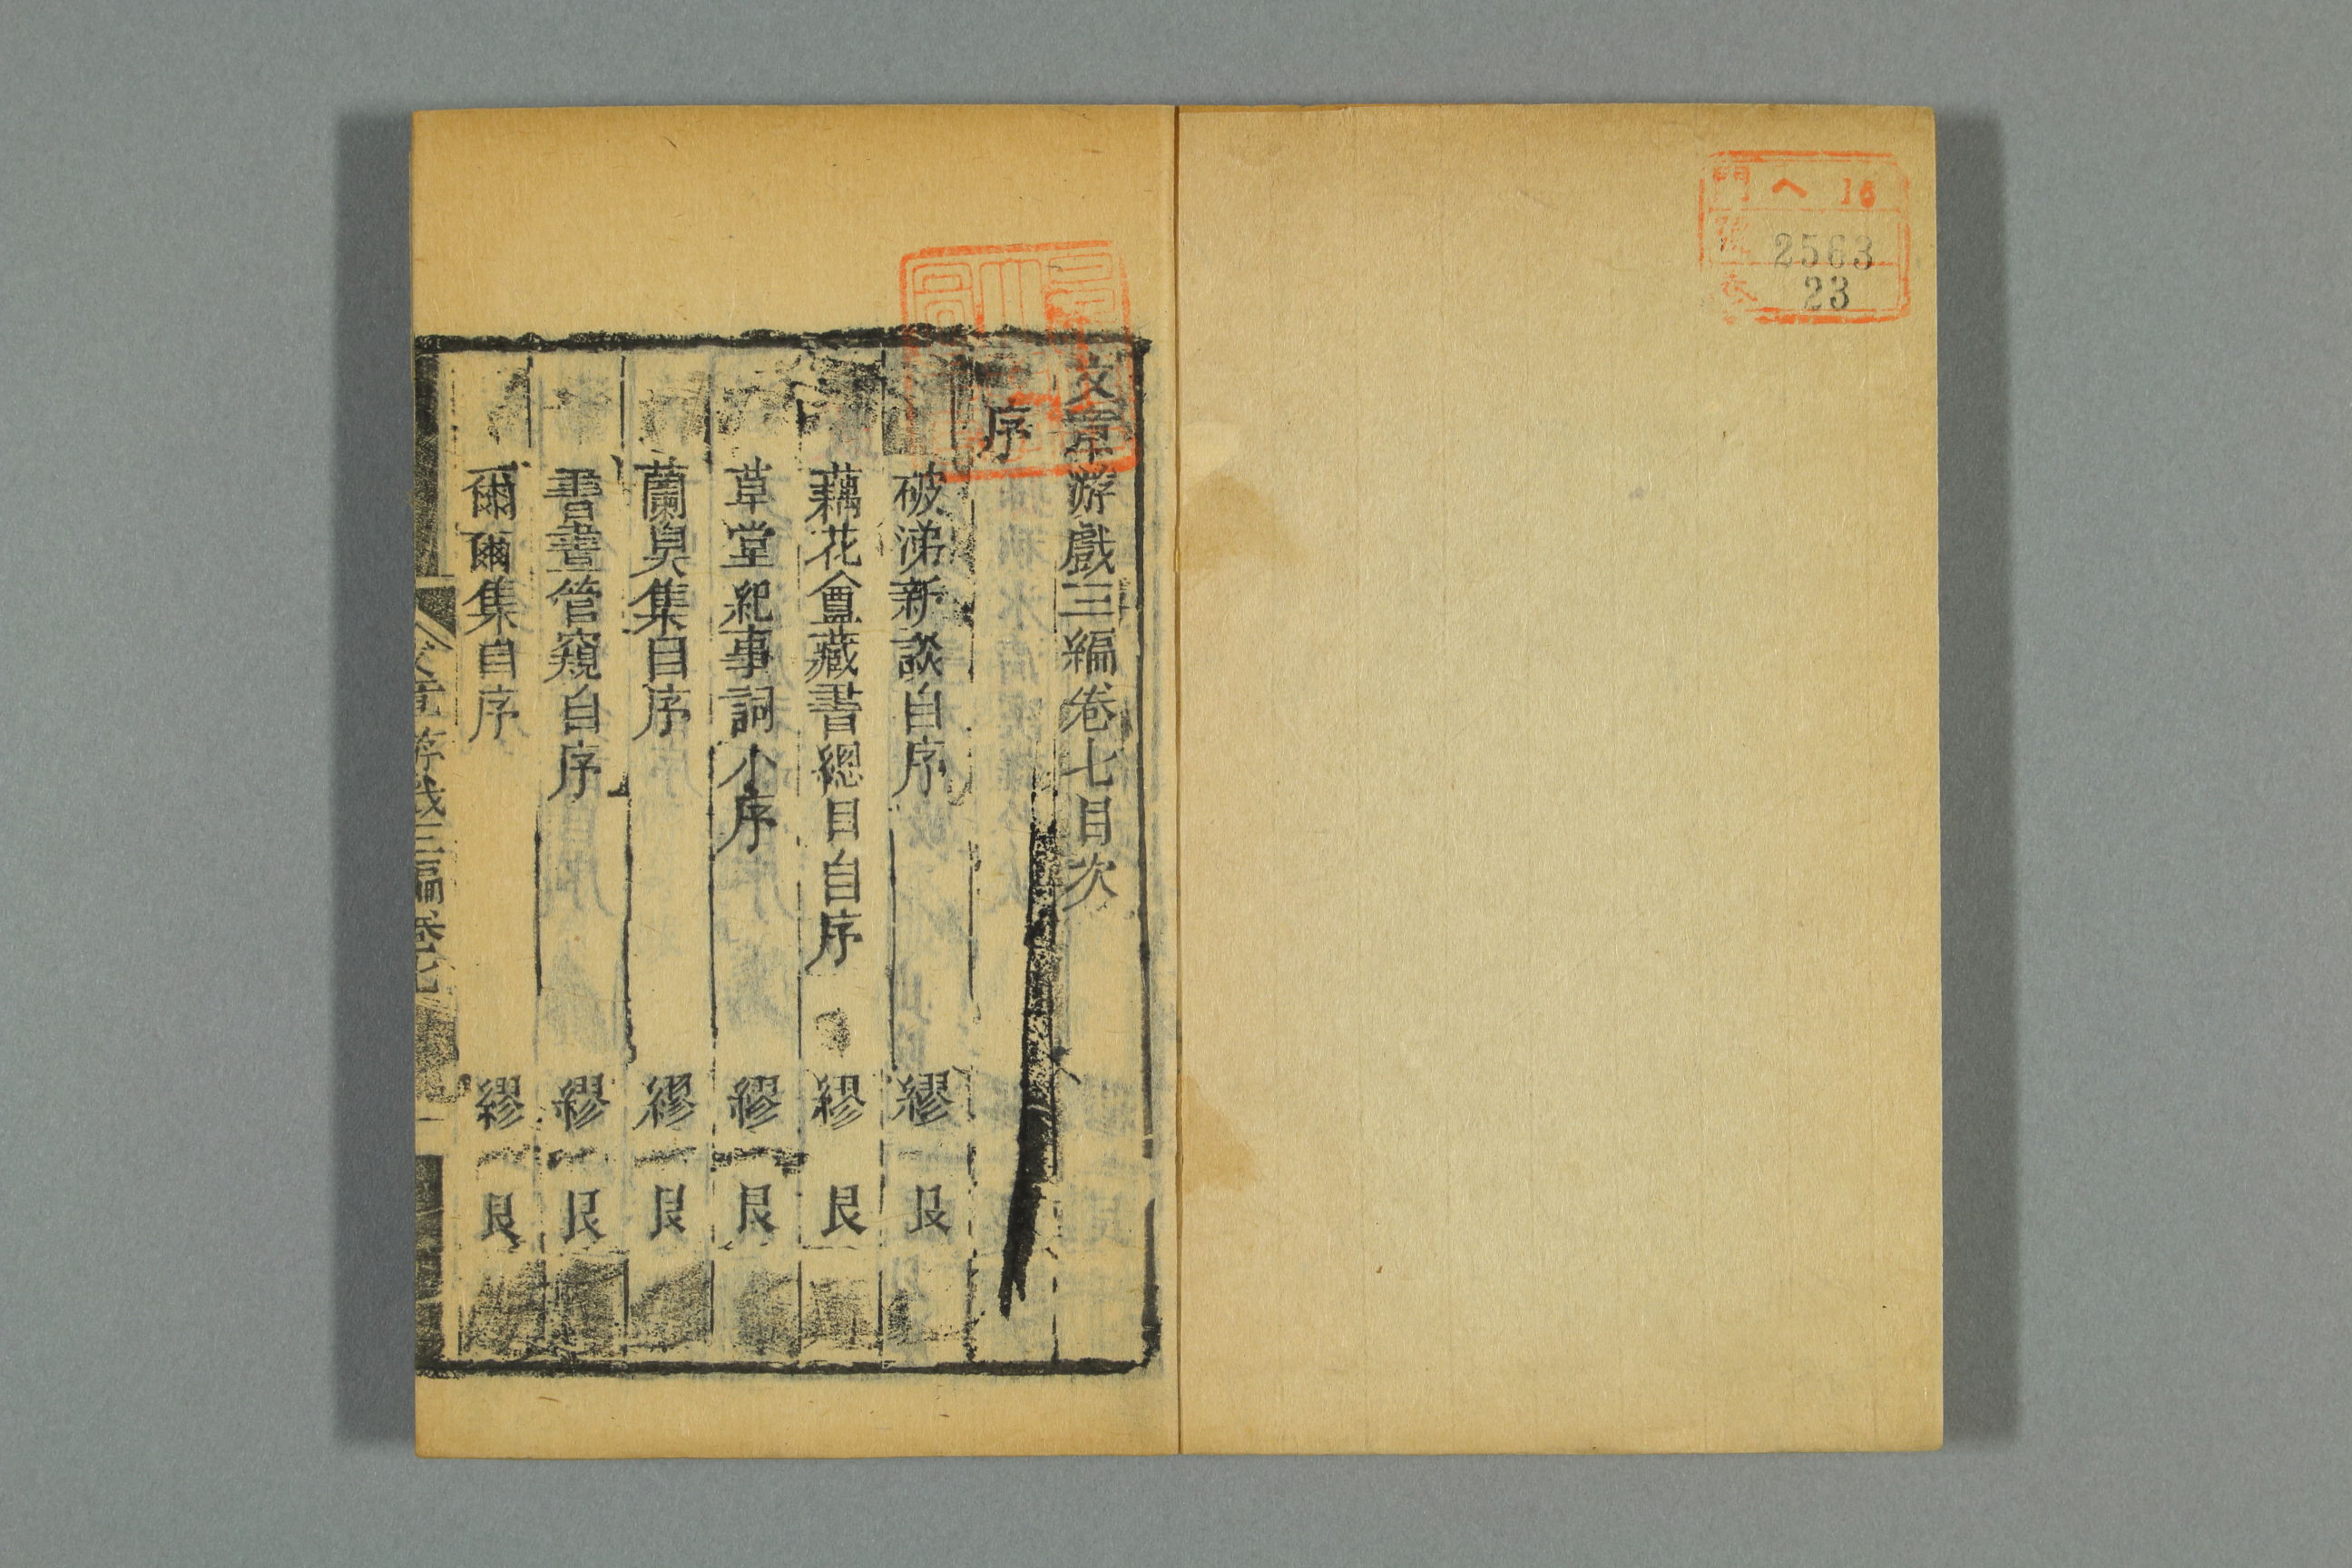 門 ヘ 16
號 2563
卷 23
文章游戲三編卷七目次
序
破涕新談自序 繆艮
藕花會藏書總目自序 繆艮
草堂紀事詞小序 繆艮
蘭臭集自序 繆艮
書畫管窺自序 繆艮
爾爾集自序 繆艮
文章游戲三編卷七